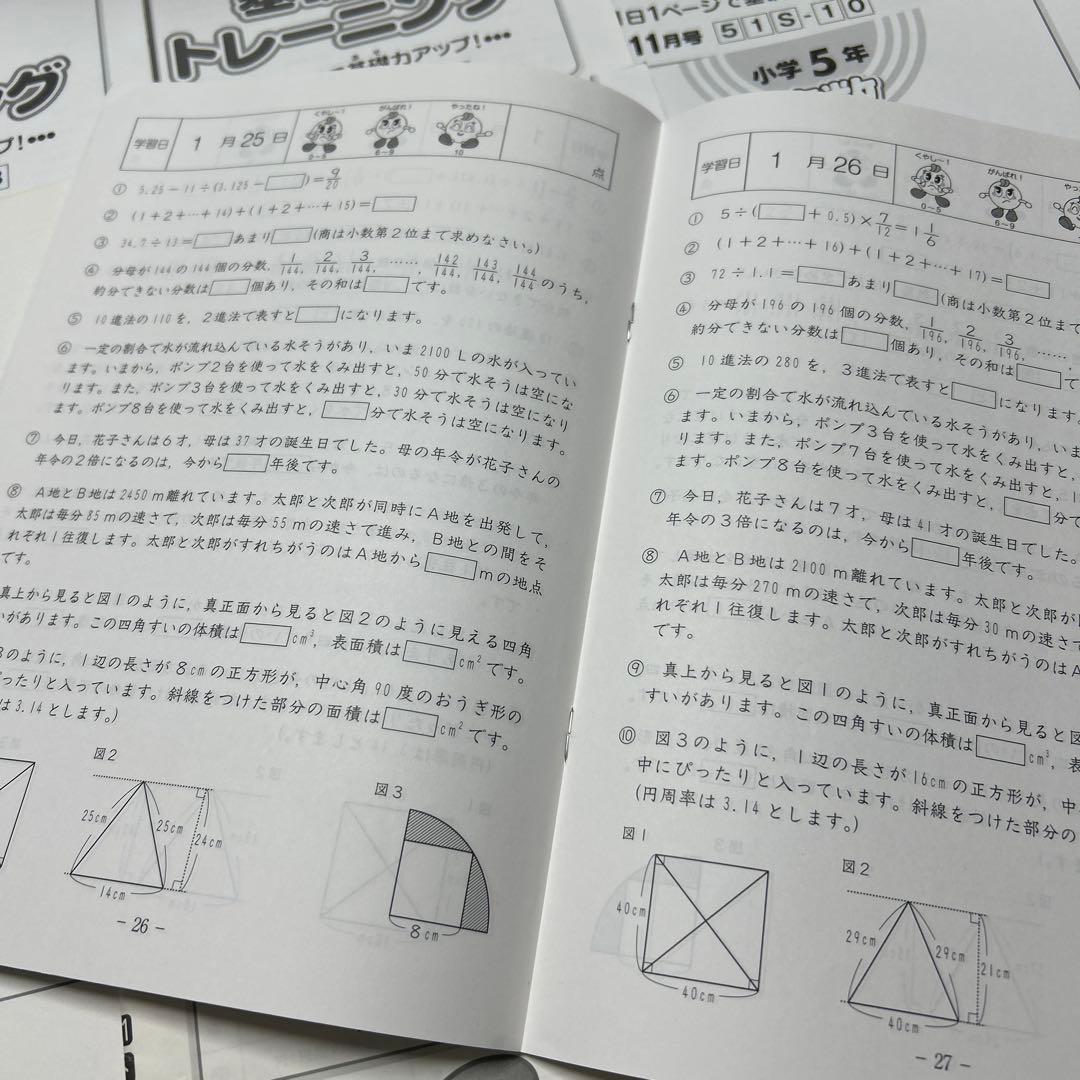 トレーニング
基礎力アップ!•••
ング
プ!•••
11月号 51S-10
小学5年
学習日 1月25日
くやし〜! 0〜5
がんばれ! 6〜9
やったね! 10
点
① 5.25−11÷(3.125−□)=9/20
② (1+2+…+14)+(1+2+…+15)=□
③ 34.7÷13=□あまり□(商は小数第2位まで求めなさい。)
④ 分母が144の144個の分数, 1/144, 2/144, 3/144, ……, 142/144, 143/144, 144/144のうち,
約分できない分数は□個あり, その和は□です。
⑤ 10進法の110を, 2進法で表すと□になります。
⑥ 一定の割合で水が流れ込んでいる水そうがあり, いま2100Lの水が入ってい
ます。いまから, ポンプ2台を使って水をくみ出すと, 50分で水そうは空にな
ります。また, ポンプ3台を使って水をくみ出すと, 30分で水そうは空になり
ます。ポンプ8台を使って水をくみ出すと, □分で水そうは空になります。
⑦ 今日, 花子さんは6才, 母は37才の誕生日でした。母の年令が花子さんの
年令の2倍になるのは, 今から□年後です。
⑧ A地とB地は2450m離れています。太郎と次郎が同時にA地を出発して,
太郎は毎分85mの速さで, 次郎は毎分55mの速さで進み, B地との間をそ
れぞれ1往復します。太郎と次郎がすれちがうのはA地から□mの地点
です。
真上から見ると図1のように, 真正面から見ると図2のように見える四角
いがあります。この四角すいの体積は□cm³, 表面積は□cm²です。
のように, 1辺の長さが8cmの正方形が, 中心角90度のおうぎ形の
ったりと入っています。斜線をつけた部分の面積は□cm²です。
は3.14とします。)
図2
25cm
25cm
24cm
14cm
図3
8cm
−26−
学習日 1月26日
くやし〜! 0〜5
がんばれ! 6〜9
① 5÷(□+0.5)×7/12=1 1/6
② (1+2+…+16)+(1+2+…+17)=□
③ 72÷1.1=□あまり□(商は小数第2位まで
④ 分母が196の196個の分数, 1/196, 2/196, 3/196, ……
約分できない分数は□個あり, その和は□で
⑤ 10進法の280を, 3進法で表すと□になります。
⑥ 一定の割合で水が流れ込んでいる水そうがあり, いま
ます。いまから, ポンプ3台を使って水をくみ出すと,
ります。また, ポンプ7台を使って水をくみ出すと, 1
ます。ポンプ8台を使って水をくみ出すと, □分で
⑦ 今日, 花子さんは7才, 母は41才の誕生日でした。
年令の3倍になるのは, 今から□年後です。
⑧ A地とB地は2100m離れています。太郎と次郎が
太郎は毎分270mの速さで, 次郎は毎分30mの速さで
れぞれ1往復します。太郎と次郎がすれちがうのはA
です。
⑨ 真上から見ると図1のように, 真正面から見ると図
すいがあります。この四角すいの体積は□cm³, 表
⑩ 図3のように, 1辺の長さが16cmの正方形が, 中
中にぴったりと入っています。斜線をつけた部分の
(円周率は3.14とします。)
図1
40cm
40cm
図2
29cm
29cm
21cm
40cm
−27−